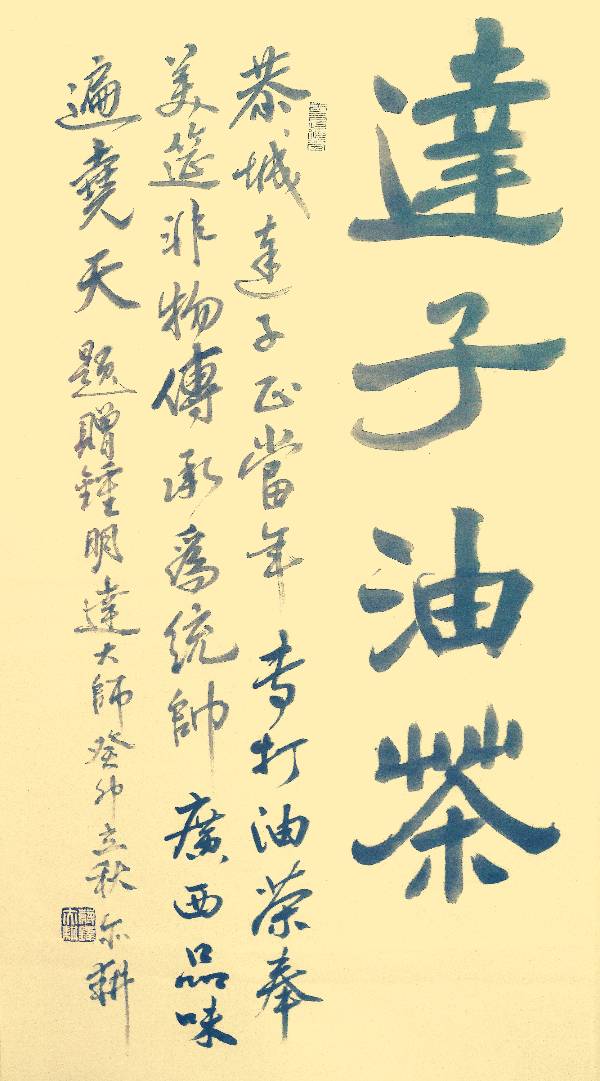 達子油茶
恭城達子正當年專打油茶奉
美筵非物傳承為統帥廣西品味
遍堯天題贈鍾明達大師癸卯立秋尔耕